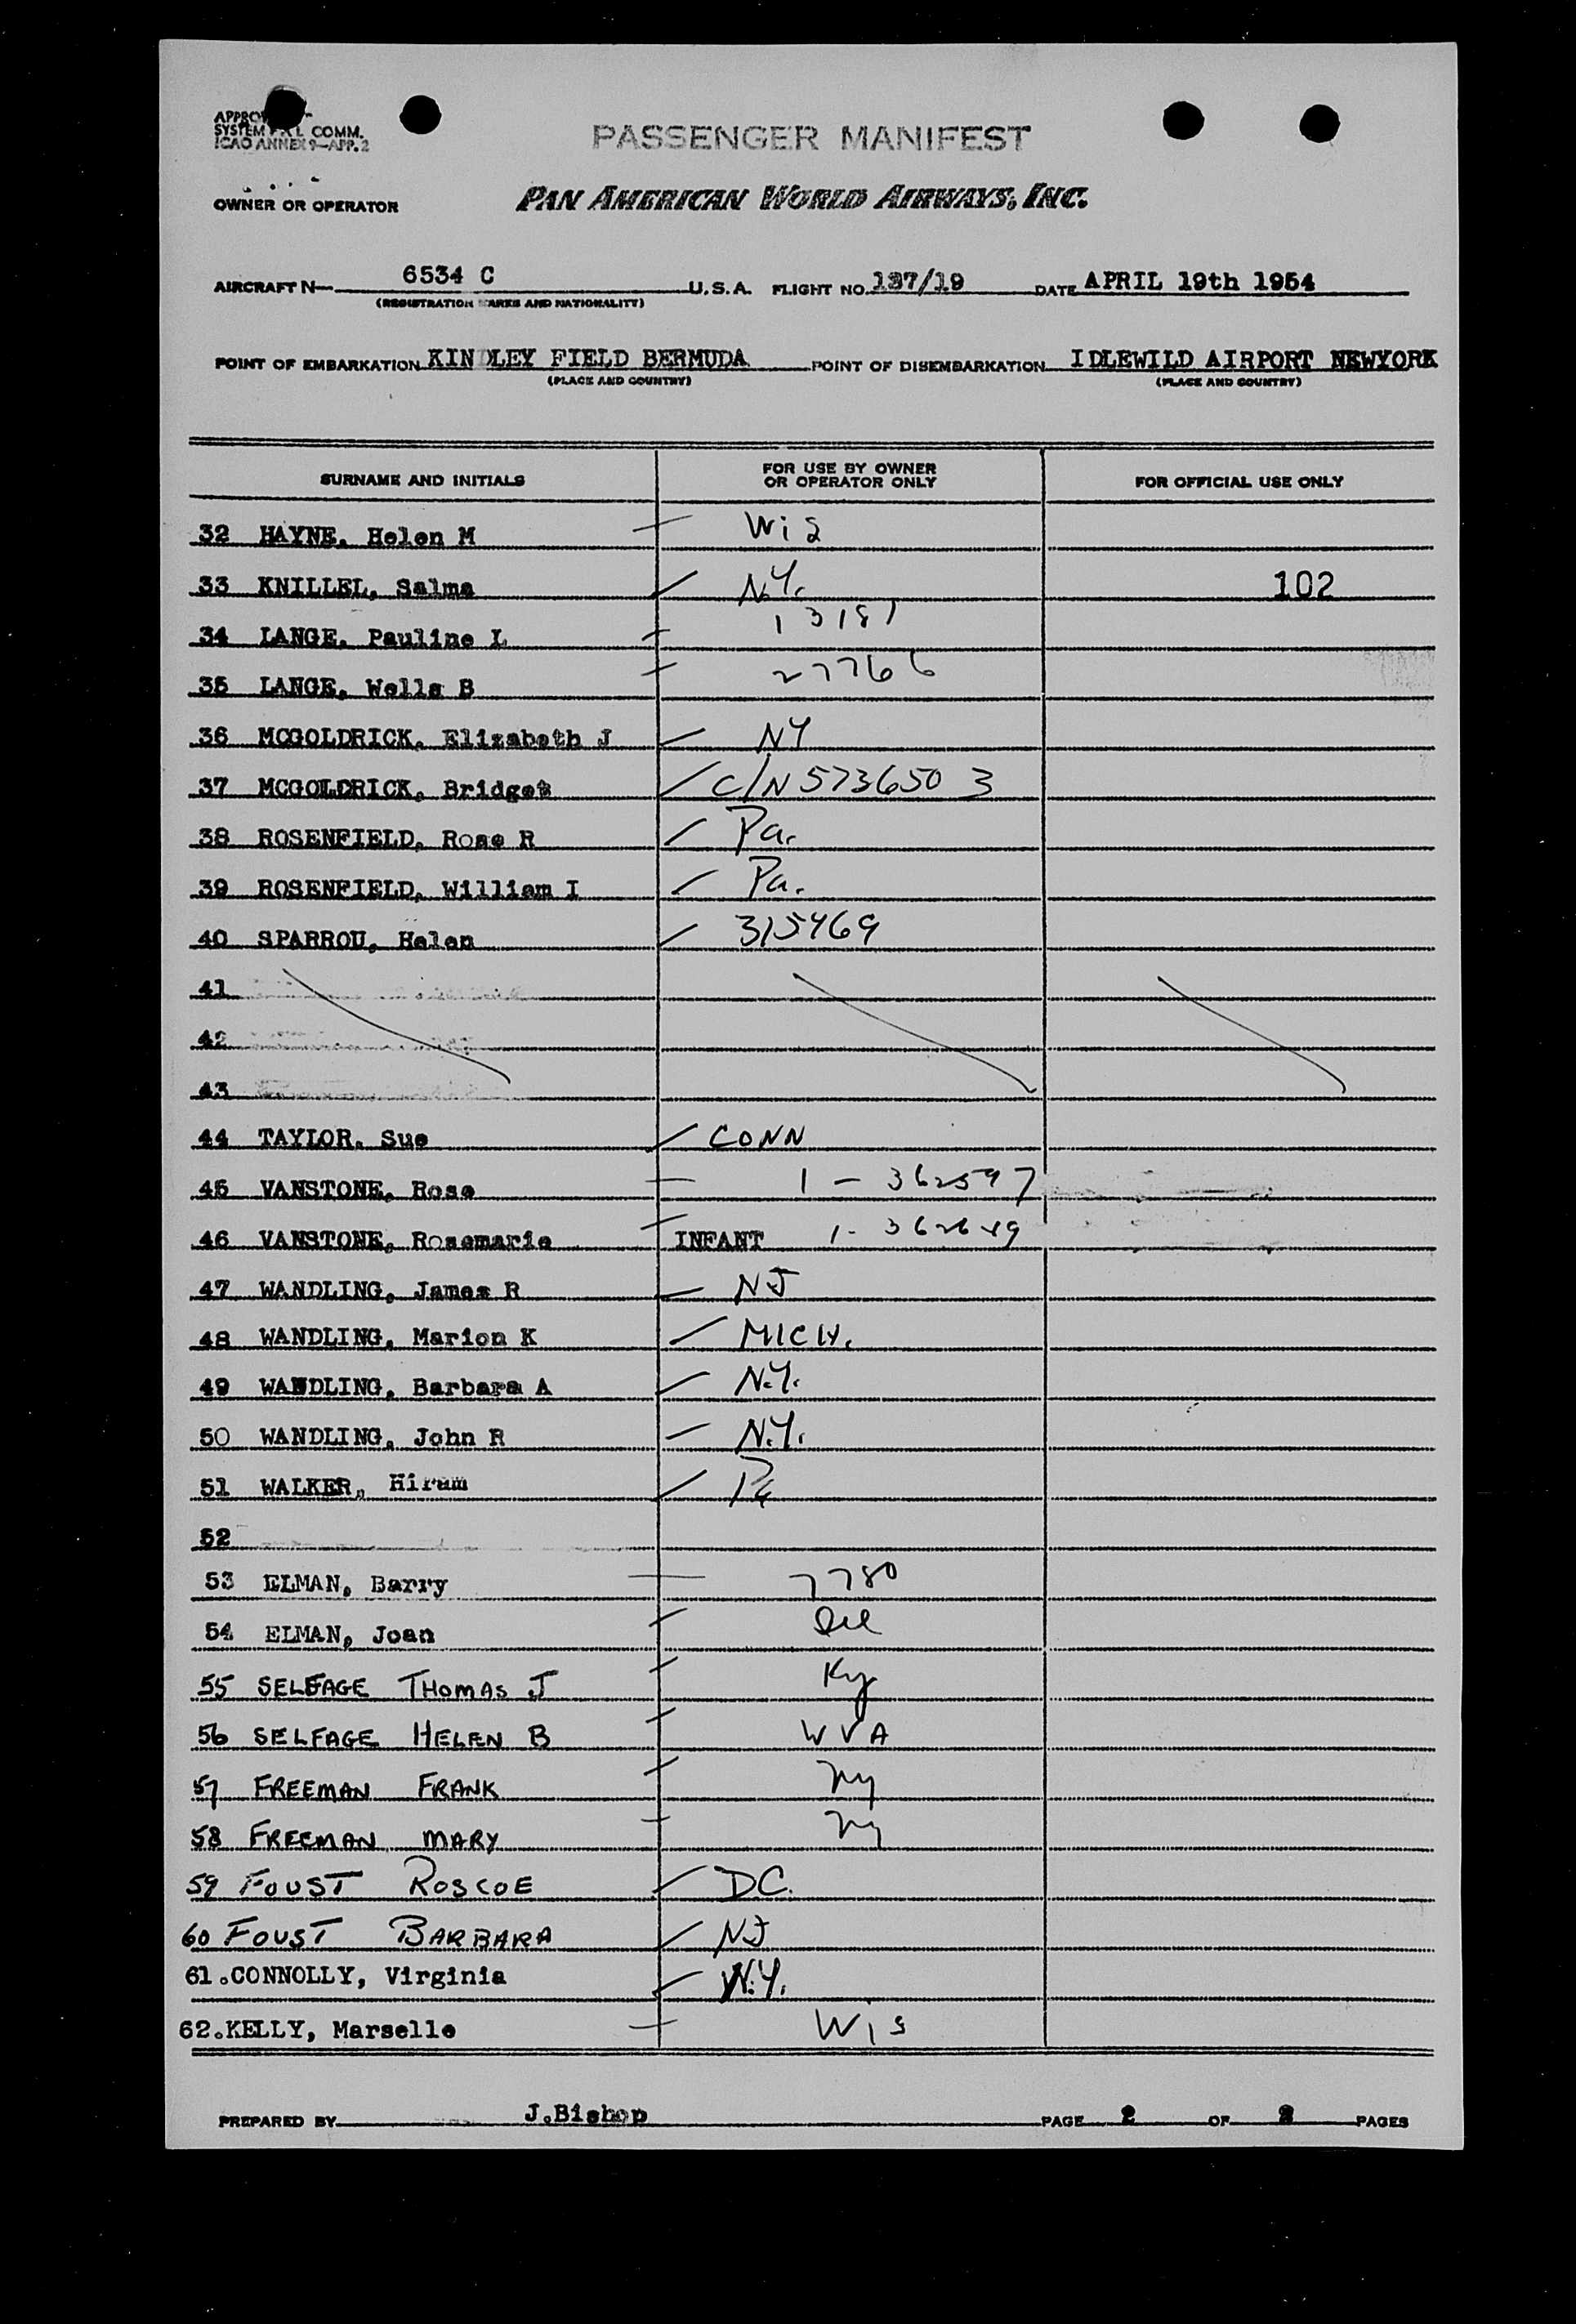 PASSENGER MANIFEST
SYSTEM COMM.
ICAO ANNEX 9—APP. 2
OWNER OR OPERATOR PAN AMERICAN WORLD AIRWAYS, INC.
AIRCRAFT N— 6534 C U.S.A. FLIGHT NO. 137/19 DATE APRIL 19th 1954
(REGISTRATION MARKS AND NATIONALITY)
POINT OF EMBARKATION KINDLEY FIELD BERMUDA POINT OF DISEMBARKATION IDLEWILD AIRPORT NEWYORK
(PLACE AND COUNTRY) (PLACE AND COUNTRY)
SURNAME AND INITIALS FOR USE BY OWNER OR OPERATOR ONLY FOR OFFICIAL USE ONLY
32 HAYNE, Helen M Wis
33 KNILLEL, Salma N.Y. 102
34 LANGE, Pauline L 13181
35 LANGE, Wells B 27766
36 MCGOLDRICK, Elizabeth J NY
37 MCGOLDRICK, Bridget C/N 5736503
38 ROSENFIELD, Rose R Pa.
39 ROSENFIELD, William I Pa.
40 SPARROU, Helen 315469
41
42
43
44 TAYLOR, Sue CONN
45 VANSTONE, Rose 1 - 362597
46 VANSTONE, Rosemarie INFANT
47 WANDLING, James R NJ
48 WANDLING, Marion K MICH.
49 WANDLING, Barbara A N.Y.
50 WANDLING, John R N.Y.
51 WALKER, Hiram Pa
52
53 ELMAN, Barry 7780
54 ELMAN, Joan
55 SELFAGE THOMAS J Ky
56 SELFAGE HELEN B W VA
57 FREEMAN FRANK Ny
58 FREEMAN MARY Ny
59 FOUST ROSCOE DC.
60 FOUST BARBARA NJ
61.CONNOLLY, Virginia N.Y.
62.KELLY, Marselle Wis
PREPARED BY J.Bishop PAGE 2 OF 2 PAGES